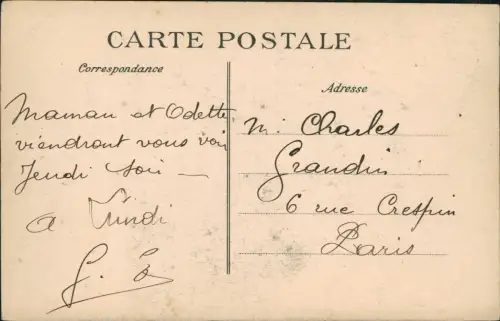 CARTE POSTALE
Correspondance
Adresse
Maman et Odette
viendront vous voir
Jeudi soir —
a Lundi
G.
M. Charles
Grandin
6 rue Crespin
Paris